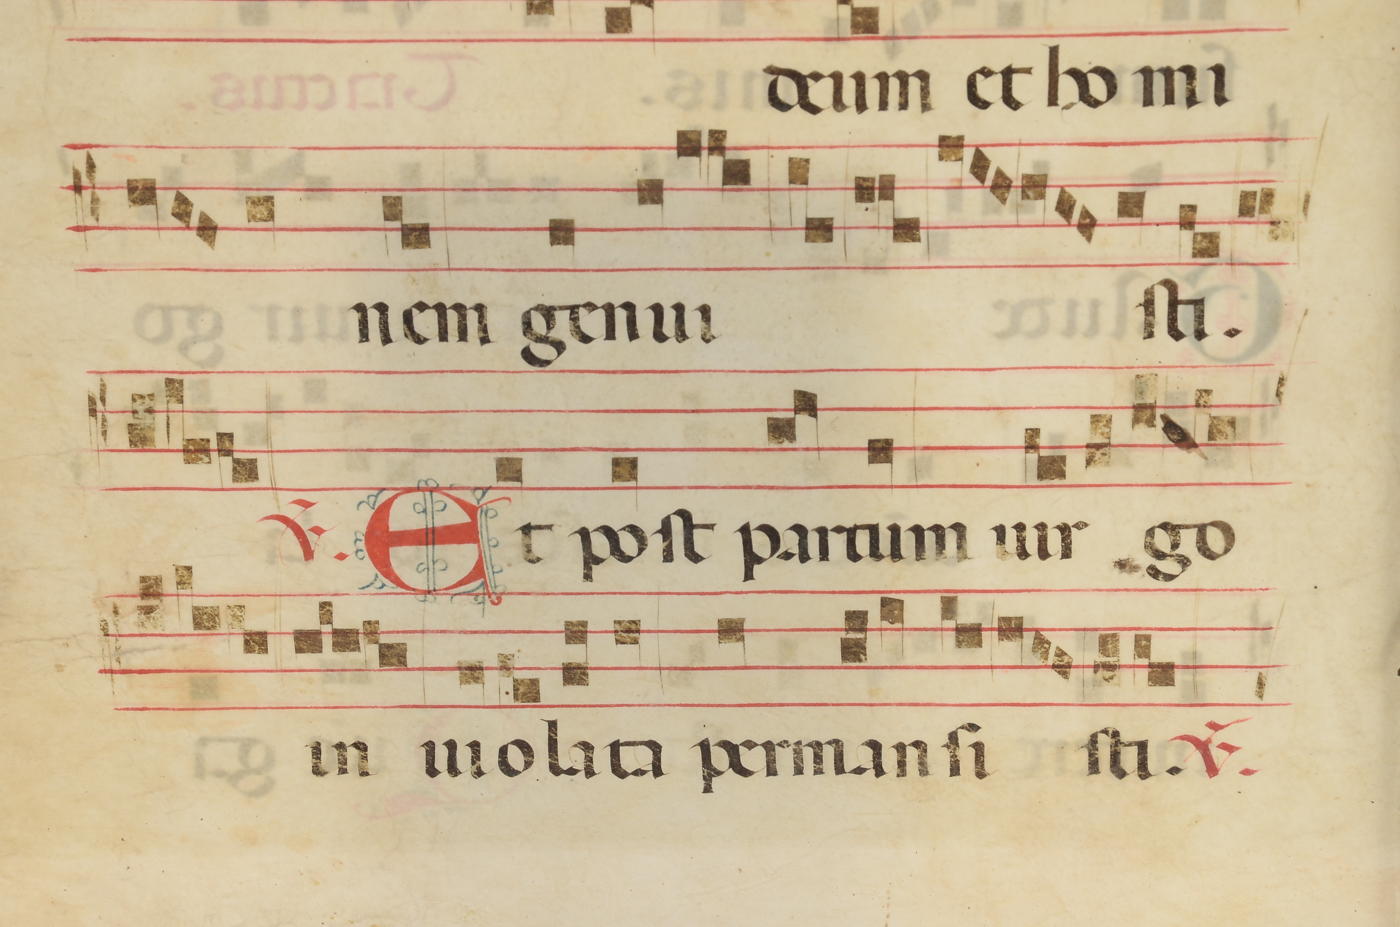 deum et ho mi
nem genui sti.
℣. Et post partum uir go
in uiolata permansi sti. ℣.